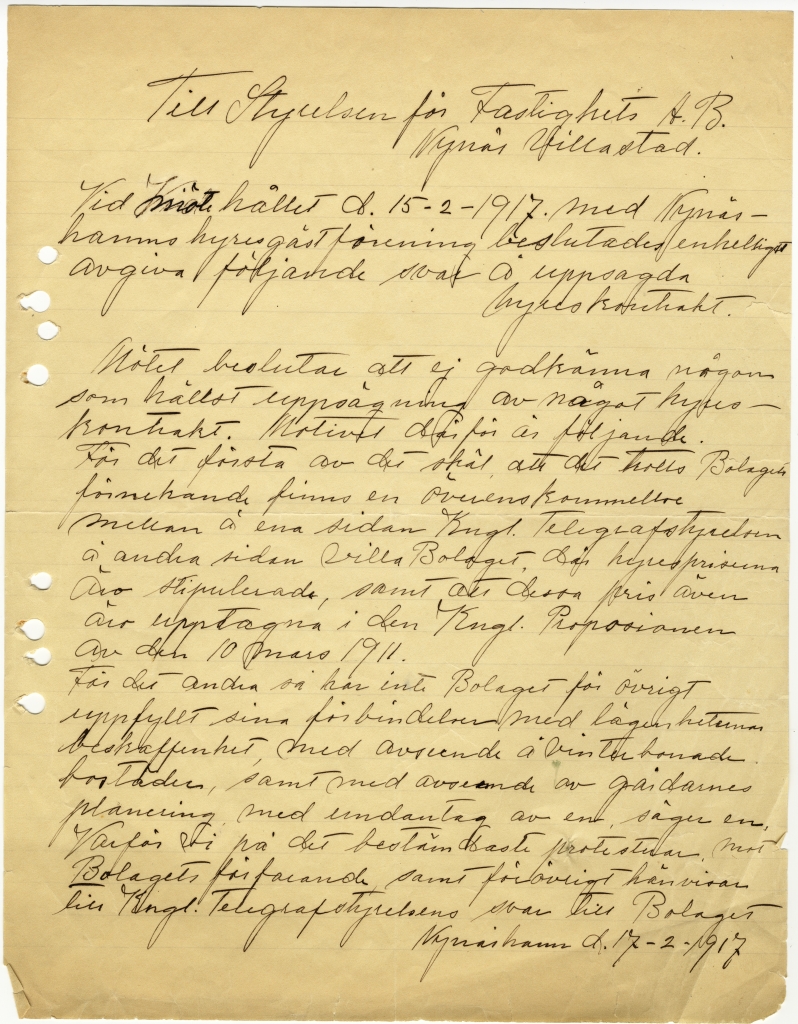 Till Styrelsen för Fastighets A.B.
Nynäs Villastad.
Vid möte hållet d. 15-2-1917. med Nynäs-
hamns hyresgästförening beslutades enhelligt
avgiva följande svar å uppsagda
hyreskontrakt.
Mötet beslutar att ej godkänna någon
som hällst uppsägning av något hyres-
kontrakt. Motivet därför är följande.
För det första av det skäl, att det trotts Bolagets
förnekande finns en överenskommellse
mellan å ena sidan Kngl. Telegrafstyrelsen
å andra sidan Villa Bolaget, där hyrespriserna
äro stipulerade, samt att dessa pris även
äro upptagna i den Kngl. Proposionen
av den 10 mars 1911.
För det andra så har inte Bolaget för övrigt
uppfyllt sina förbindelser med lägenheternas
beskaffenhet, med avseende å vinterbonade
bostäder, samt med avseende av gårdarnes
planering, med undantag av en, säger en.
Varför vi på det bestämdaste protesterar, mot
Bolagets förfarande samt för övrigt hänvisar
till Kngl. Telegrafstyrelsens svar till Bolaget
Nynäshamn d. 17-2-1917